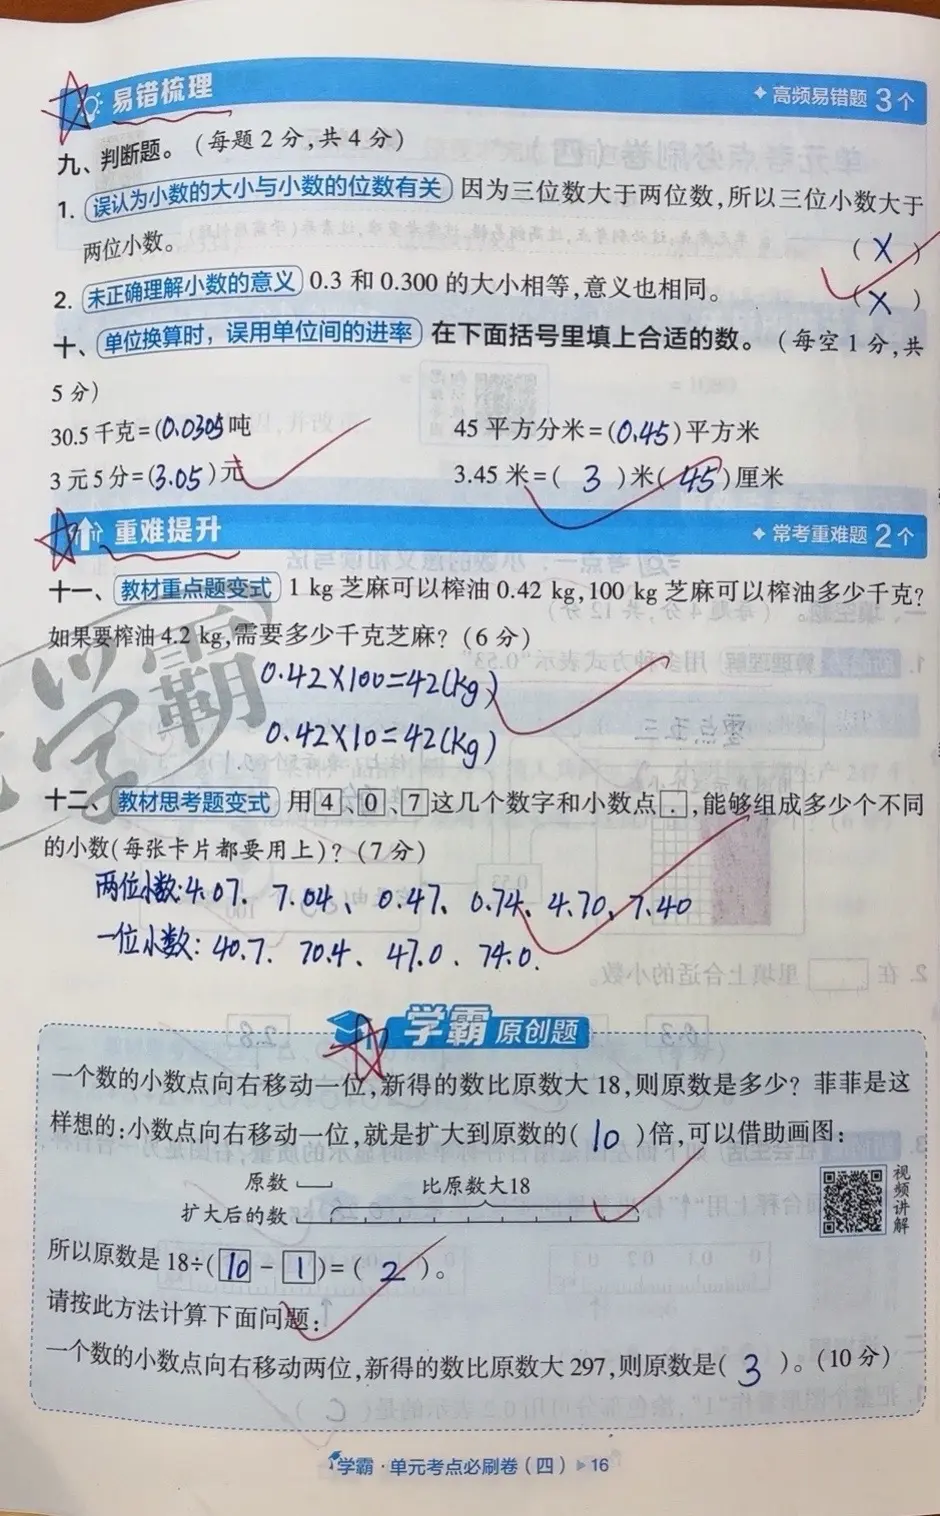 易错梳理
高频易错题 3 个
九、判断题。(每题 2 分,共 4 分)
1. 误认为小数的大小与小数的位数有关 因为三位数大于两位数,所以三位小数大于
两位小数。 ( X )
2. 未正确理解小数的意义 0.3 和 0.300 的大小相等,意义也相同。 ( X )
十、 单位换算时,误用单位间的进率 在下面括号里填上合适的数。(每空 1 分,共
5 分)
30.5 千克=(0.0305)吨 45 平方分米=(0.45)平方米
3 元 5 分=(3.05)元 3.45 米=( 3 )米( 45 )厘米
重难提升
常考重难题 2 个
十一、 教材重点题变式 1 kg 芝麻可以榨油 0.42 kg,100 kg 芝麻可以榨油多少千克?
如果要榨油 4.2 kg,需要多少千克芝麻?(6 分)
0.42×100=42(kg)
0.42×10=42(kg)
学霸
十二、 教材思考题变式 用 4、0、7 这几个数字和小数点 . ,能够组成多少个不同
的小数(每张卡片都要用上)?(7 分)
两位小数:4.07、7.04、0.47、0.74、4.70、7.40
一位小数:40.7、70.4、47.0、74.0.
学霸 原创题
一个数的小数点向右移动一位,新得的数比原数大 18,则原数是多少?菲菲是这
样想的:小数点向右移动一位,就是扩大到原数的( 10 )倍,可以借助画图:
原数 比原数大18
扩大后的数
视频讲解
所以原数是 18÷( 10 - 1 )=( 2 )。
请按此方法计算下面问题:
一个数的小数点向右移动两位,新得的数比原数大 297,则原数是( 3 )。(10 分)
学霸·单元考点必刷卷(四) 16